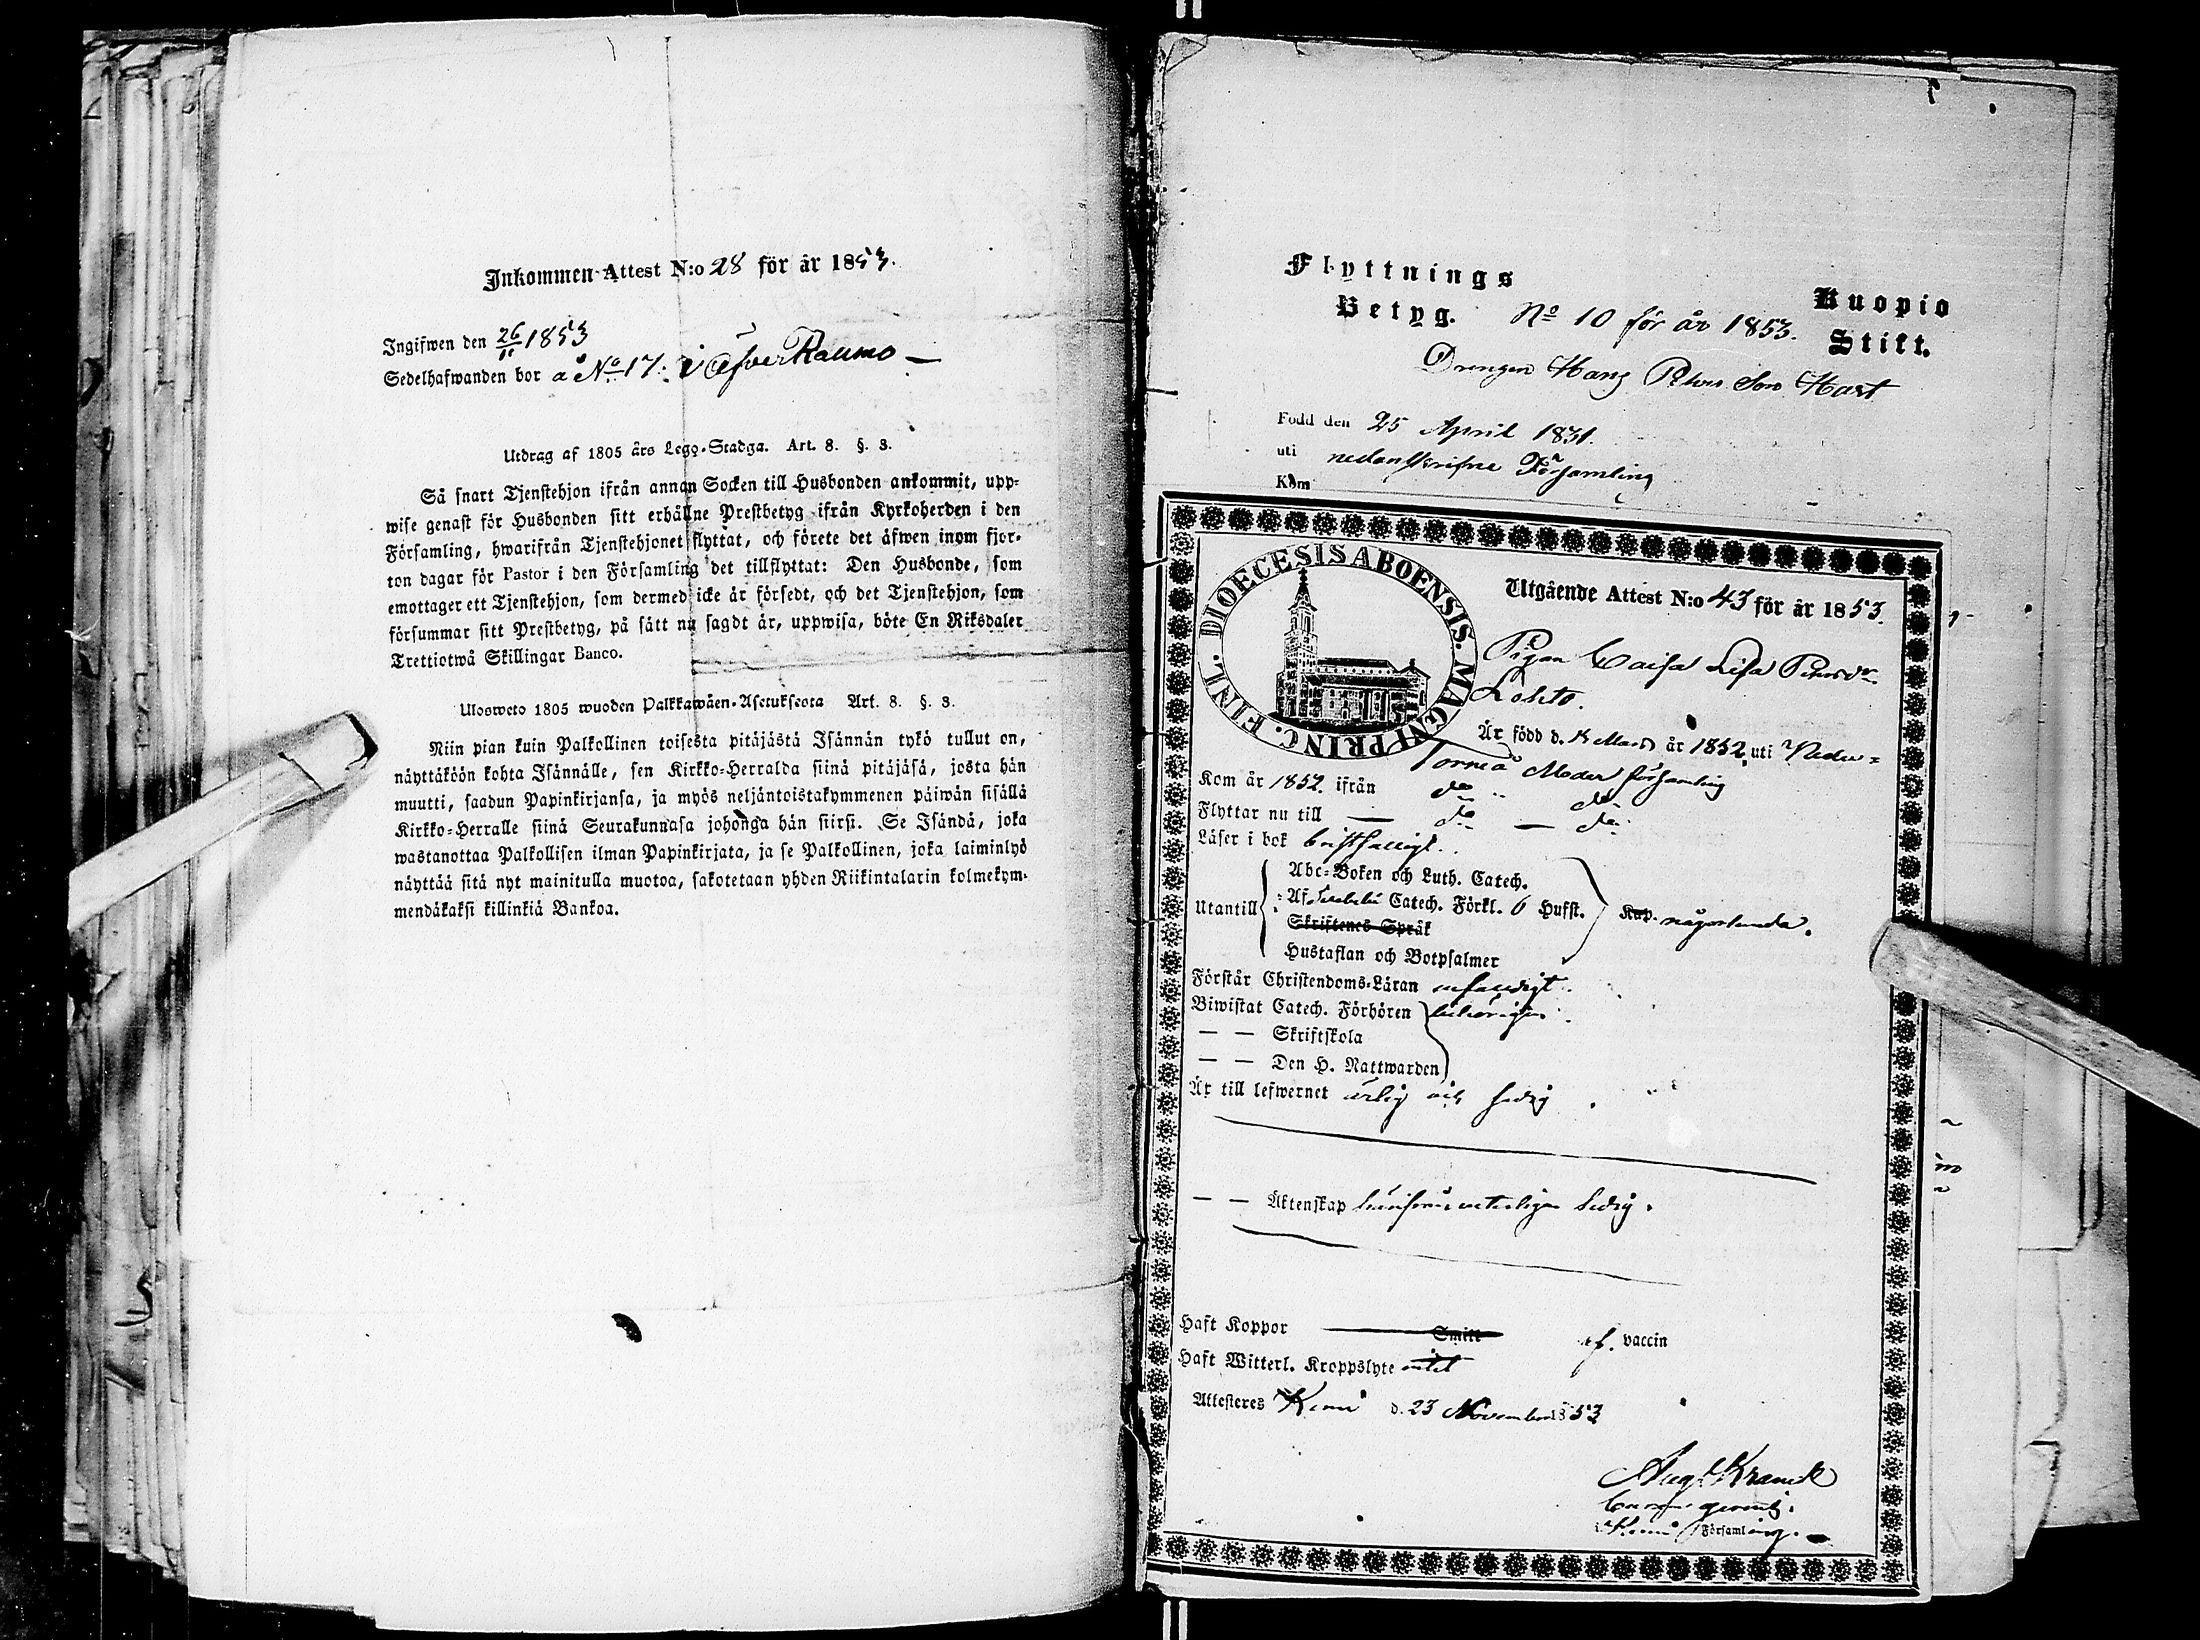 Inkommen Attest N:o 28 för år 1853.
Ingifwen den 26/11 1853
Sedelhafwanden bor å No 17. i Öfver Raumo —
Utdrag af 1805 års Lego-Stadga. Art. 8. §. 3.
Så snart Tjenstehjon ifrån annan Socken till Husbonden ankommit, upp-
wise genast för Husbonden sitt erhållne Prestbetyg ifrån Kyrkoherden i den
Församling, hwarifrån Tjenstehjonet flyttat, och förete det äfwen inom fjor-
ton dagar för Pastor i den Församling det tillflyttat: Den Husbonde, som
emottager ett Tjenstehjon, som dermed icke är försedt, och det Tjenstehjon, som
försummar sitt Prestbetyg, på sätt nu sagdt är, uppwisa, böte En Riksdaler
Trettiotwå Skillingar Banco.
Ulosweto 1805 wuoden Palkkawäen-Asetuksesta Art. 8. §. 3.
Niin pian kuin Palkollinen toisesta pitäjästä Isännän tykö tullut on,
näyttäköön kohta Isännälle, sen Kirkko-Herralda siinä pitäjäsä, josta hän
muutti, saadun Papinkirjansa, ja myös neljäntoistakymmenen päiwän sisällä
Kirkko-Herralle siinä Seurakunnasa johonga hän siirsi. Se Isändä, joka
wastanottaa Palkollisen ilman Papinkirjata, ja se Palkollinen, joka laiminlyö
näyttää sitä nyt mainitulla muotoa, sakotetaan yhden Riikintalarin kolmekym-
mendäkaksi killinkiä Bankoa.
Flyttnings
Betyg. No 10 för år 1853.
Kuopio
Stift.
Drengen Hans Pehrs Son Hast
Född den 25 April 1831.
uti nedanskrifne Församling
Kom
DIOECESIS ABOENSIS. MAGNI PRINC. FINL.
Utgående Attest N:o 43 för år 1853.
Pigan Caisa Lisa Pehrsdr
Lohto.
Är född d. Mars år 1832 uti Neder-
Torneå Moder församling
Kom år 1852. ifrån do do
Flyttar nu till — do — do
Läser i bok
Utantill
Abc-Boken och Luth. Catech.
Af Svebelii Catech. Förkl. 6 Hufst.
Skriftenes Språk
Hustaflan och Botpsalmer
Kap. någorlunda.
Förstår Christendoms-Läran
Biwistat Catech. Förhören behörigen.
— — Skriftskola
— — Den H. Nattwarden
Är till lefwernet ärlig och sedig.
— — Äktenskap ledig.
Haft Koppor Smitt af. vaccin
Haft Witterl. Kroppslyte intet
Attesteres Kemi d. 23 November 1853
Aug. Kranck
i Kemi Församling.